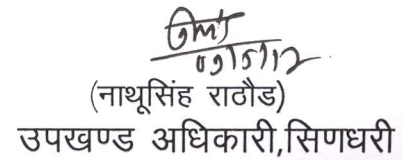 09/5/12
(नाथूसिंह राठौड)
उपखण्ड अधिकारी,सिणधरी